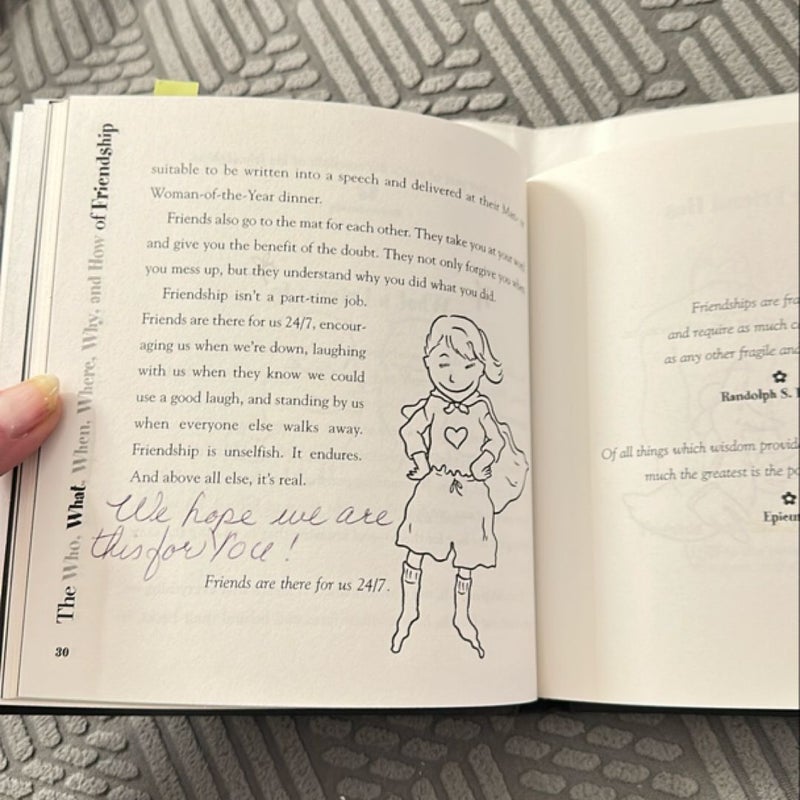 suitable to be written into a speech and delivered at their Man-or
Woman-of-the-Year dinner.
Friends also go to the mat for each other. They take you at your word
and give you the benefit of the doubt. They not only forgive you when
you mess up, but they understand why you did what you did.
Friendship isn't a part-time job.
Friends are there for us 24/7, encour-
aging us when we're down, laughing
with us when they know we could
use a good laugh, and standing by us
when everyone else walks away.
Friendship is unselfish. It endures.
And above all else, it's real.
We hope we are
this for You!
Friends are there for us 24/7.
The Who, What, When, Where, Why, and How of Friendship
30
Friendships are fra
and require as much c
as any other fragile and
Randolph S.
Of all things which wisdom provid
much the greatest is the po
Epicu